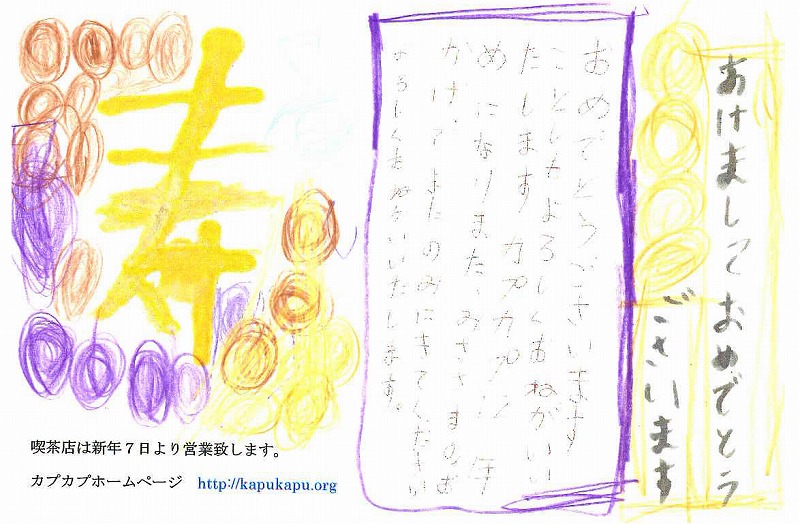 あけましておめでとう
ございます
おめでとうございます
ことしもよろしくおねがいい
たします カプカプ 年
めになりました みなさまのお
かげ またのみにきてください
よろしくおねがいいたします。
寿
喫茶店は新年７日より営業致します。
カプカプホームページ http://kapukapu.org